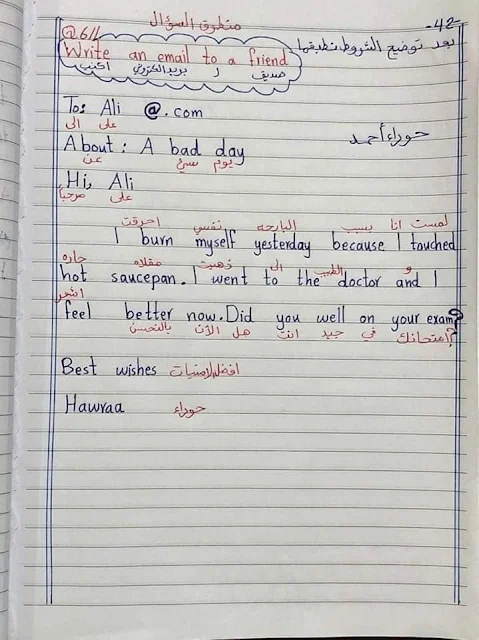 -42-
منطوق السؤال
بعد توضيح الشروط نطبقها
Write an email to a friend
اكتب بريد الكتروني ل صديق
To: Ali @.com
الى علي
حوراء أحمد
About: A bad day
عن سيئ يوم
Hi, Ali
مرحبا علي
I burn myself yesterday because I touched
احرقت نفسي البارحه بسبب انا لمست
hot saucepan. I went to the doctor and I
حاره مقلاه ذهبت الى الطبيب و
feel better now. Did you well on your exam?
اشعر بالتحسن الآن هل انت جيد في امتحانك؟
Best wishes افضل الامنيات
Hawraa حوراء